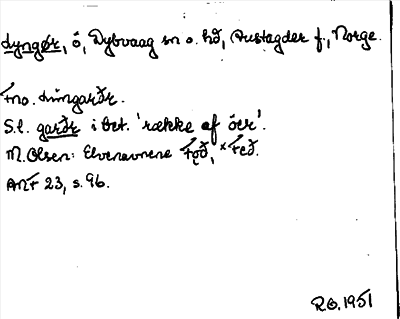 Lyngør, ó, Dybvaag sn o. hd, Austagder f., Norge.
Fno. 
S.l. garðr i bet. 'række af öer'.
M. Olsen: Elvenavnene
ANF 23, s. 96.
RO. 1951